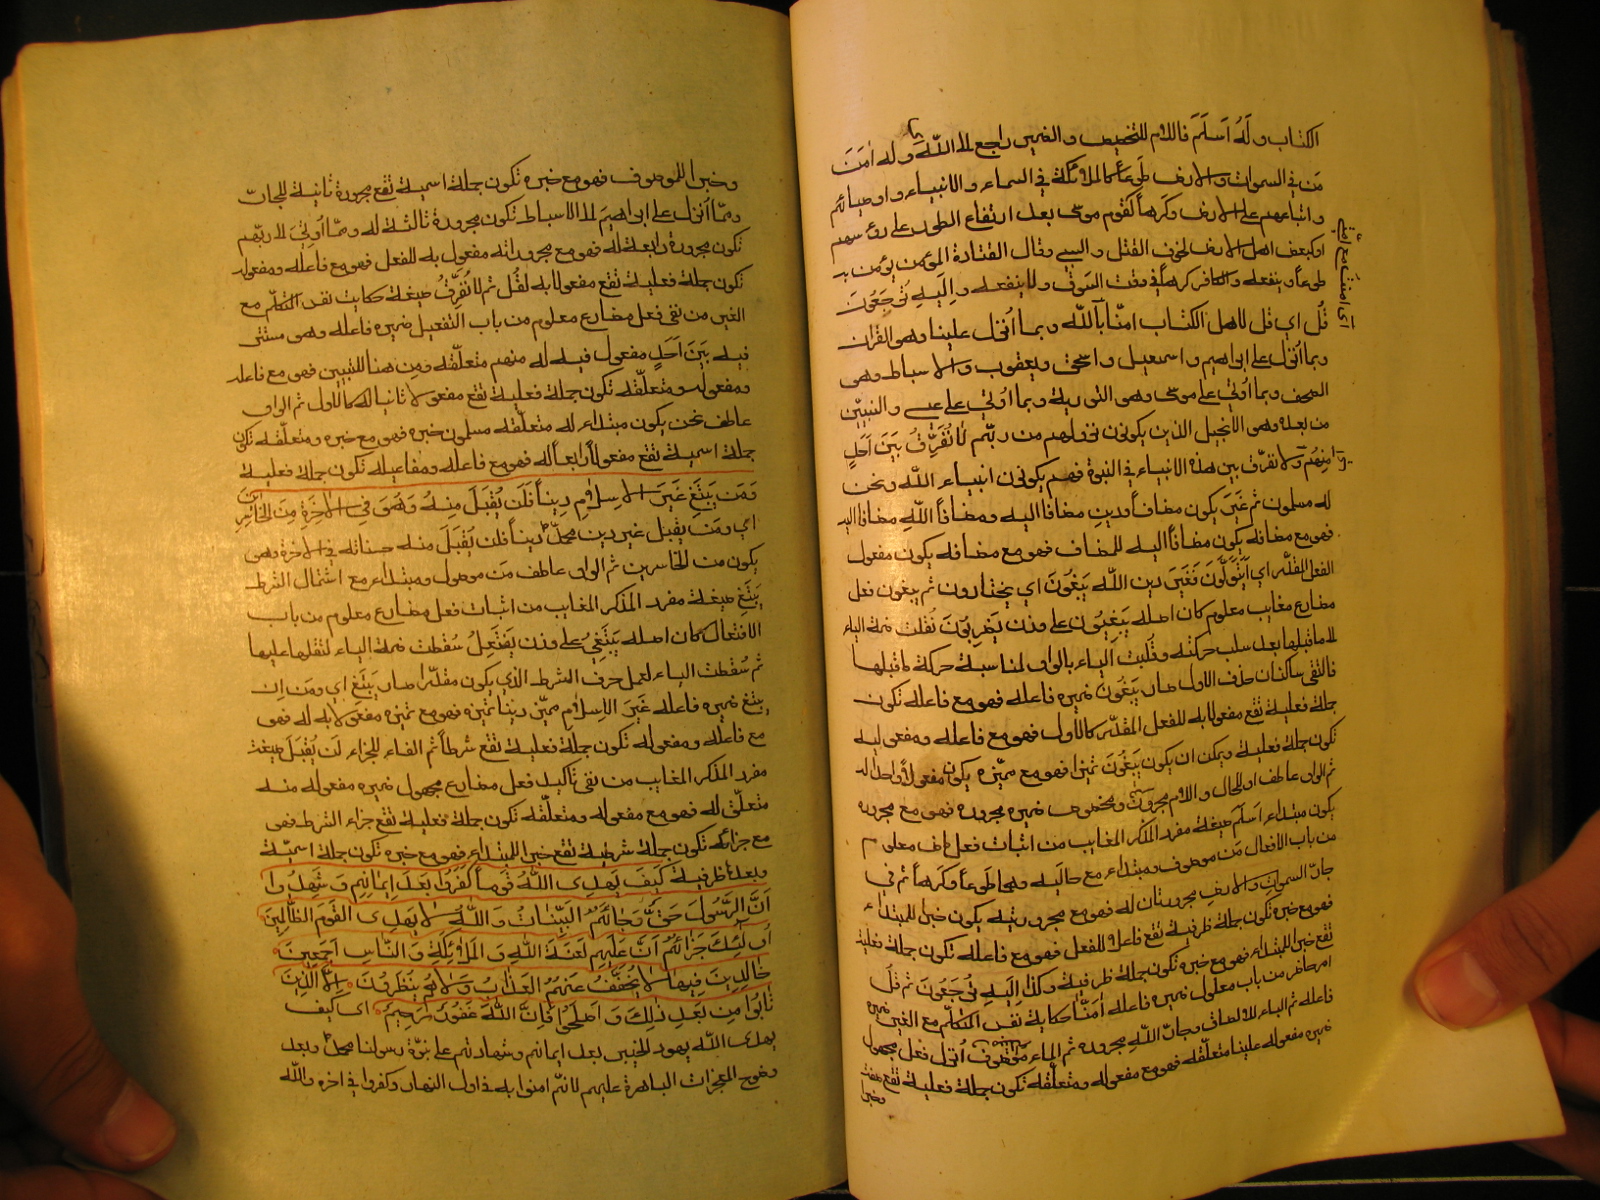 الكتاب وَلَهُ اَسْلَمَ فاللام للتخصيص والضمير راجع لى اللّه وله اٰمن
مَن في السموات والارض طوعًا كالملائكة في السماء والانبياء واوصيائهم
واتباعهم على الارض وكرهاً كقوم موسى بعد ارتفاع الطور على رؤسهم
او كبعض اهل الارض لخوف القتل والسبي وقال القتادة المؤمن يؤمن به
طوعًا وينفعه والكافر كرها في وقت السوف ولا ينفعه وَاِلَيهِ تُرْجَعُونَ
قُل اي قل لاهل الكتاب امنّا بِاللّه وبما اُنزل علينا وهى القرآن
وبما اُنزل على ابراهيم واسمعيل واسحق ويعقوب والاسباط وهى
الصحف وبما اُوتي على موسى وهى التورية وبما اوتي على عيسى والنبيّين
من بعده وهى الانجيل الذين يكونون من ربّهم لاٰ نُفَرِّقُ بَيْنَ اَحَدٍ
مِنهُم ولا نفرّق بين هذه الانبياء في النبوة فهم يكونون انبياء اللّه ونحن
له مسلمون ثم غَيرَ يكون مضافاً ودينِ مضافا اليه ومضافاً اللّهِ مضافا اليه
فهو مع مضافه يكون مضافاً اليه للمضاف فهو مع مضافه يكون مفعول
الفعل المقدّر اي اَيَتَوَلَّوْنَ فَغَيْرَ دين اللّه يَبْغُونَ اي يختارون ثم يبغون فعل
مضارع مغايب معلوم كان اصله يَبْغِيُونَ على وزن يَضْرِبُونَ نُقلت ضمة الياء
لى ماقبلها بعد سلب حركته وقُلبت الياء بالواو لمناسبة حركة ماقبلها
فالتقى ساكنان حذف الاول صار يَبْغُونَ ضميره فاعله فهو مع فاعله تكون
جملة فعلية تقع مفعولا به للفعل المقدّر كالاول فهو مع فاعله ومفعوليه
تكون جملة فعلية ويمكن ان يكون يَبْغُونَ تميزا فهو مع مميّزه يكون مفعولاً واحدا له
ثم الواو عاطف او للحال واللام مجرور ومخصوص ضميره مجروره فهو مع مجروره
يكون مبتداء اَسلَمَ صيغة مفرد المذكر المغايب من اثبات فعل ماض معلوم
من باب الافعال مَن موصوف ومبتداء مع حاليه وهما طوعاً وكرهاً ثم في
جارّ السمواتِ والارضِ مجرورتان له فهو مع مجروريه يكون خبرا للمبتداء
فهو مع خبره تكون جملة ظرفية تقع فاعلا للفعل فهو مع فاعله تكون جملة فعلية
تقع خبر للمبتداء فهو مع خبره تكون جملة ظرفية وكذا اِلَيهِ تُرجَعُونَ ثم قُل
امر حاضر من باب معلول ضميره فاعله اٰمَنّا حكاية نفس المتكلّم مع الغير ضميره
فاعله ثم الباء للالصاق وجارّ اللّهِ مجروره ثم الماء موصوف اُنزل فعل مجهول
ضميره مفعوله علينا متعلّقه فهو مع مفعوله ومتعلّقه تكون جملة فعلية تقع صفت
وخبرا
وخبرا للموصوف فهو مع خبره تكون جملة اسمية تقع مجرورة ثانية للجارّ
وممّا اُنزل على ابراهيمَ لى الاسباط تكون مجرورة ثالثة له وممّا اُوتِيَ لى ربّهم
تكون مجرورة رابعة له فهو مع مجروراته مفعول به للفعل فهو مع فاعله ومفعوله
تكون جملة فعلية تقع مفعولا به لقُل ثم لا نُفرِّقُ صيغة حكايت نفس المتكلّم مع
الغير من نفى فعل مضارع معلوم من باب التفعيل ضميره فاعله وهى مستتر
فيه بَينَ اَحَدٍ مفعول فيه له منهم متعلّقه ومِن هنا للتبيين فهو مع فاعله
ومفعوله ومتعلّقه تكون جملة فعلية تقع مفعولا ثانيا له كالاول ثم الواو
عاطف نحن يكون مبتداء له متعلّقه مسلمون خبره فهو مع خبره ومتعلّقه تكون
جملة اسمية تقع مفعولاً رابعاً له فهو مع فاعله ومفاعيله تكون جملة فعلية
وَمَن يَبْتَغِ غَيرَ الاِسلاٰمِ دِيناً فَلَن يُقْبَلَ مِنهُ وَهُوَ فِى الاٰخِرَةِ مِنَ الخَاسِرِينَ
اي ومَن يقبل غير دين محمّد ديناً فلن يُقبَلَ منه حسناته في الاخرة وهى
يكون من الخاسرين ثم الواو عاطف مَن موصول ومبتداء مع اشتمال الشرط
يَبْتَغِ صيغة مفرد المذكر المغايب من اثبات فعل مضارع معلوم من باب
الافتعال كان اصله يَبْتَغِيُ على وزن يَفْتَعِلُ سُقطت ضمة الياء لثقلها عليها
ثم سُقطت الياء لعمل حرف الشرط الذي يكون مقدّرا صار يَبْتَغِ اي ومَن اِن
يبتغ ضميره فاعله غَيرَ الاِسلاٰمِ مميّز ديناً تميزه فهو مع تميزه مفعولا به له فهو
مع فاعله ومفعوله تكون جملة فعلية تقع شرطاً ثم الفاء للجزاء لَن يُقبَلَ صيغة
مفرد المذكر المغايب من نفى تأكيد فعل مضارع مجهول ضميره مفعوله منه
متعلّق له فهو مع مفعوله ومتعلّقه تكون جملة فعلية تقع جزاء الشرط فهى
مع جزائه تكون جملة شرطية تقع خبرا للمبتداء فهو مع خبره تكون جملة اسميّة
وبعدها ظرفية كَيفَ يَهدِى اللّٰهُ قَوماً كَفَرُوا بَعدَ اِيمَانِهِم وَشَهِدُوا
اَنَّ الرَّسُولَ حَقٌّ وَجَائَهُم البَيِّنَاتُ وَاللّٰهُ لاٰ يَهدِى القَومَ الظَّالِمِينَ
اُولٰئِكَ جَزَائُهُم اَنَّ عَلَيهِم لَعنَةَ اللّٰهِ وَالمَلاٰئِكَةِ وَالنَّاسِ اَجمَعِينَ
خٰالِدِينَ فِيهَا لاٰ يُخَفَّفُ عَنهُمُ العَذَابُ وَلاٰ هُم يُنظَرُونَ اِلاَّ الَّذِينَ
تَابُوا مِن بَعدِ ذٰلِكَ وَاَصلَحُوا فَاِنَّ اللّٰهَ غَفُورٌ رَحِيمٌ اى كيف
يهدى اللّه يهود الخيبر بعد ايمانهم وشهادتهم على نبوّة رسولنا محمّد وبعد
وضوح المعجزات الباهرة عليهم لانّهم امنوا به في اول النهار وكفروا في اخره واللّه